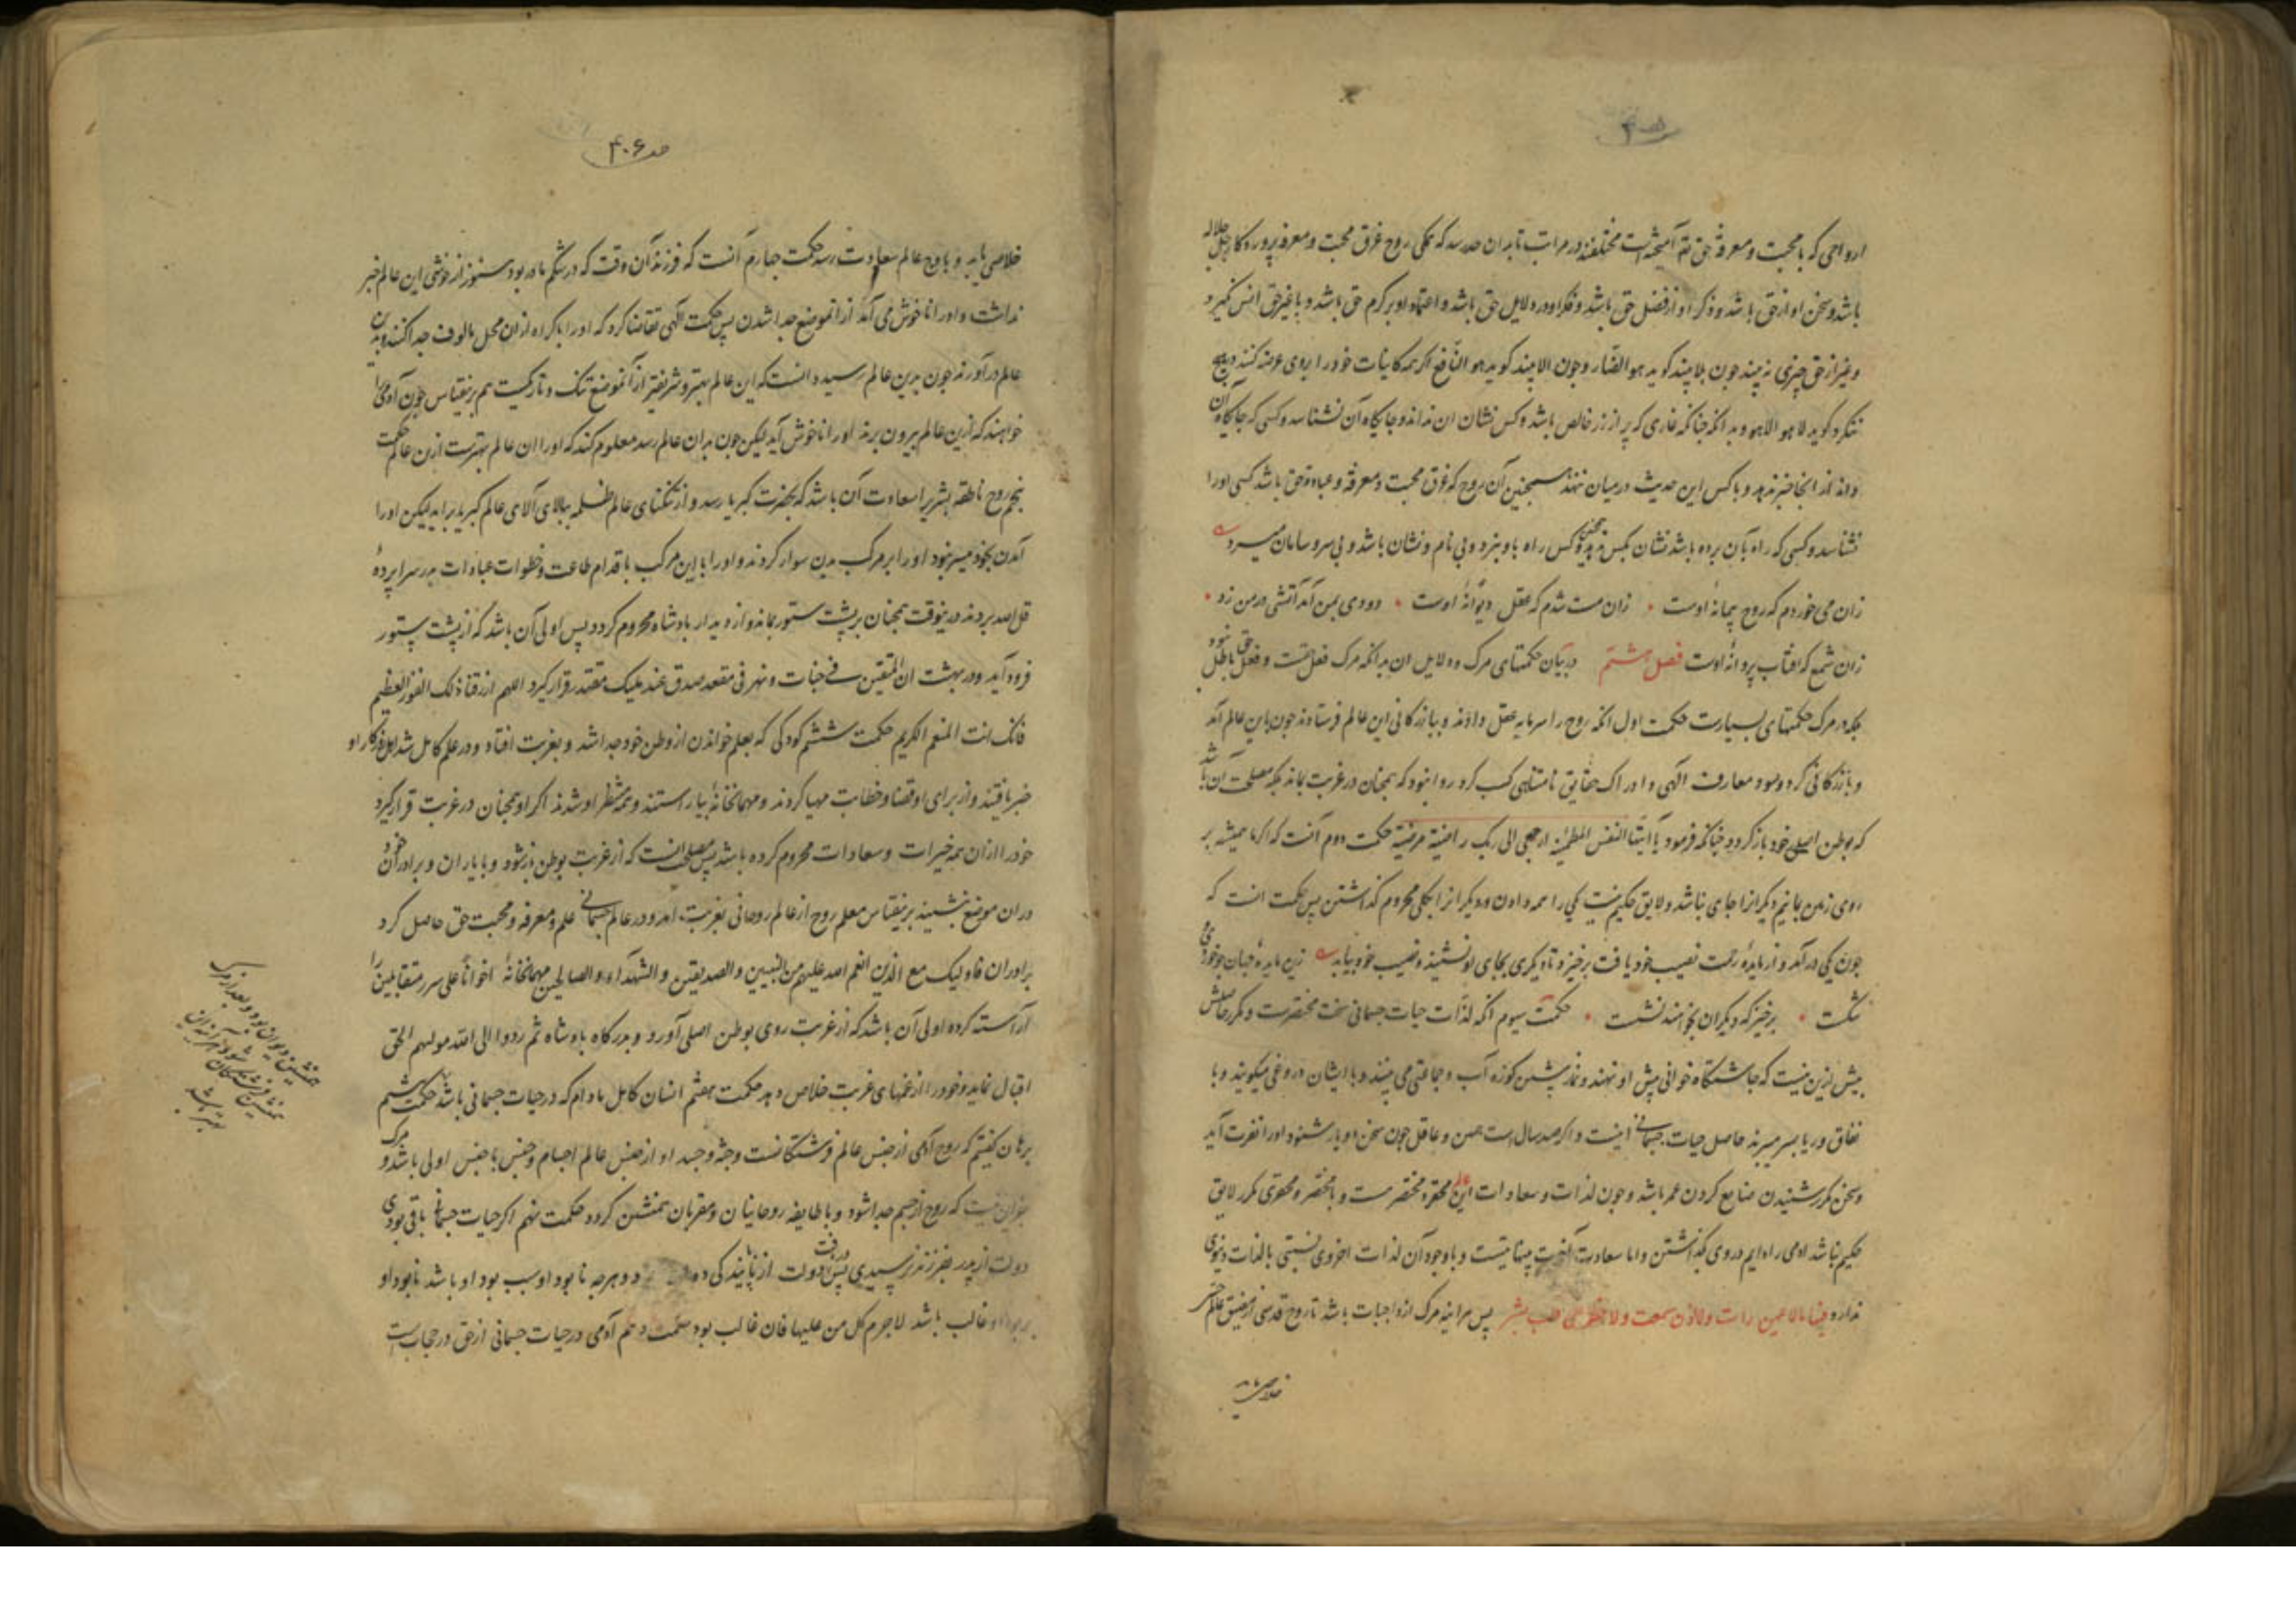 ارواحی که با محبت و معرفة حق تع آمیخته است مختلفند در مراتب تا بدان حد رسد که کلی روح غرق محبت و معرفة پروردگار جل جلاله
باشد و سخن او از حق باشد و ذکر او از فضل حق باشد و فکر او در دلایل حق باشد و اعتماد او بر کرم حق باشد و با غیر حق انس نگیرد
و غیر از حق چیزی نه بیند چون بلا بیند کوید هو الضار و چون الا بیند کوید هو النافع اکر همه کاینات خود را بروی عرضه کنند بهیچ
ننکرد و کوید لا هو الا هو و بدانکه چنانکه غاری که پر از زر خالص باشد و کس نشان ان نداند و جایکاه آن نشناسد و کسی که جایکاه ان
داند از انجا خبر ندهد و با کس این حدیث در میان ننهد همچنین آن روح که غرق محبت و معرفة و عبادة حق باشد کسی او را
نشناسد و کسی که راه بآن برده باشد نشان بکس ندهد و هیچ کس راه باو نبرد و بی نام و نشان باشد و بی سر و سامان میرود
زان می خوردم که روح پیمانهٔ اوست • زان مست شدم که عقل دیوانهٔ اوست • دودی بمن آمد آتشی در من زد •
زان شمع که افتاب پروانهٔ اوست فصل هشتم در بیان حکمتهای مرک و دلایل ان بدانکه مرک فعل حقست و فعل حق باطل نبود
بلکه در مرک حکمتهای بسیارست حکمت اول انکه روح را سرمایه عقل دادند و ببازرکانی این عالم فرستادند چون باین عالم آمد
و بازرکانی کرد و سود معارف الهی و ادراک حقایق نامتناهی کسب کرد روا نبود که همچنان در غربت بماند بلکه مصلحت آن باشد
که بوطن اصلی خود باز کردد چنانکه فرمود یا ایتها النفس المطمئنه ارجعی الی ربک راضیة مرضیة حکمت دوم آنست که اکر ما همیشه بر
روی زمین بمانیم دیکرانرا جای نباشد و لایق حکیم نیست یکی را همه دادن و دیکرانرا بکلی محروم کذاشتن پس حکمت انست که
چون یکی در آمد و از مایدهٔ رحمت نصیب خود یافت برخیزد تا دیکری بجای او نشیند و نصیب خود بیابد زین مایدهٔ جهان چو خوردی
شکست • برخیز که دیکران بخواهند نشست • حکمت سیوم انکه لذات حیات جسمانی سخت مختصرست و مکرر حاصلش
بیش ازین نیست که چاشتکاه خوانی پیش او نهند و نماز پیشین کوزه آب و جماعتی می بیند و با ایشان دروغی میکویند و با
نفاق و ریا بسر میبرند حاصل حیات جسمانی اینست و اکر صد سال است همین و عاقل چون سخن دو بار شنود او را نفرت آید
و سخن مکرر شنیدن ضایع کردن عمر باشد و چون لذات و سعادات این عالم محقر و مختصرست و با مختصر و محقری مکرر لایق
حکیم نباشد ادمی را دایم در وی بکذاشتن و اما سعادت آخرت بینهایتست و با وجود آن لذات اخروی نسبتی بالذات دنیوی
ندارد فیها ما لا عین رات و لا اذن سمعت و لا خطر علی قلب بشر پس هراینه مرک از واجبات باشد تا روح قدسی از مضیق عالم
خلاصی یابد
۴۰۶
خلاصی یابد و باوج عالم سعادت رسد حکمت چهارم آنست که فرزند آن وقت که در شکم مادر بود هنوز از خوشی این عالم خبر
نداشت و او را ناخوش می آمد از انموضع جدا شدن پس حکمت الهی تقاضا کرد که او را باکراه ازان محل مالوف جدا کنند و بدین
عالم در آورند چون بدین عالم رسید دانست که این عالم بهتر و شریفتر از آنموضع تنک و تاریکست هم برینقیاس چون آدمی را
خواهند که ازین عالم بیرون برند او را ناخوش آید لیکن چون بدان عالم رسد معلوم کند که او را ان عالم بهترست ازین عالم حکمت
پنجم روح ناطقه بشریرا سعادت آن باشد که بحضرت کبریا رسد و از تنکنای عالم ظلمه ببالای آلای عالم کبریا برآید لیکن او را
آمدن بخود میسر نبود او را بر مرکب بدن سوار کردند و او را با این مرکب باقدام طاعت و خطوات عبادات بدر سراپردهٔ
قل الله بردند درینوقت همچنان بر پشت ستور بماند و از دیدار پادشاه محروم کردد پس اولی آن باشد که از پشت ستور
فرود آید و در بهشت ان المتقین فی جنات و نهر فی مقعد صدق عند ملیک مقتدر قرار کیرد اللهم ارزقنا ذلک الفوز العظیم
فانک انت المنعم الکریم حکمت ششم کودکی که بعلم خواندن از وطن خود جدا شد و بغربت افتاد و در علم کامل شد اهل از کار او
خبر یافتند و از برای او قضا و خطابت مهیا کردند و مهمانخانه بیاراستند و همه منتظر او شدند اکر او همچنان در غربت قرار کیرد
خود را ازان همه خیرات و سعادات محروم کرده باشد پس مصلحت انست که از غربت بوطن باز شود و با یاران و برادران خود
دران موضع بنشیند برینقیاس معلم روح از عالم روحانی بغربت آمد و در عالم جسمانی علم و معرفه و محبت حق حاصل کرد
برادران فاولیک مع الذین انعم الله علیهم من النبیین و الصدیقین و الشهدآء و الصالحین مهمانخانهٔ اخوانا علی سرر متقابلین را
آراسته کرده اولی آن باشد که از غربت روی بوطن اصلی آورد و بدرکاه پادشاه ثم ردوا الی الله مولیهم الحق
اقبال نماید و خود را از غمهای غربت خلاص دهد حکمت هفتم انسان کامل مادام که در حیات جسمانی باشد حکمت هشتم
برهان کفتیم که روح آدمی از جنس عالم فرشتکانست و جثه و جسد او از جنس عالم اجسام و جنس با جنس اولی باشد و مرک
بجز این نیست که روح از جسم جدا شود و با طایفه روحانیان و مقربان همنشین کردد حکمت نهم اکر حیات جسمانی باقی بودی
دولت از پدر بفرزند نرسیدی پس دریافت دولت از ناپایندکی و هرچه نابود او سبب بود او باشد نابود او
بر بود او غالب باشد لاجرم کل من علیها فان غالب بود حکمت دهم آدمی در حیات جسمانی از حق در حجابست
همنشین دیوان بود و بعد از مرک
همنشین فرشتکان شود
بهتر باشد